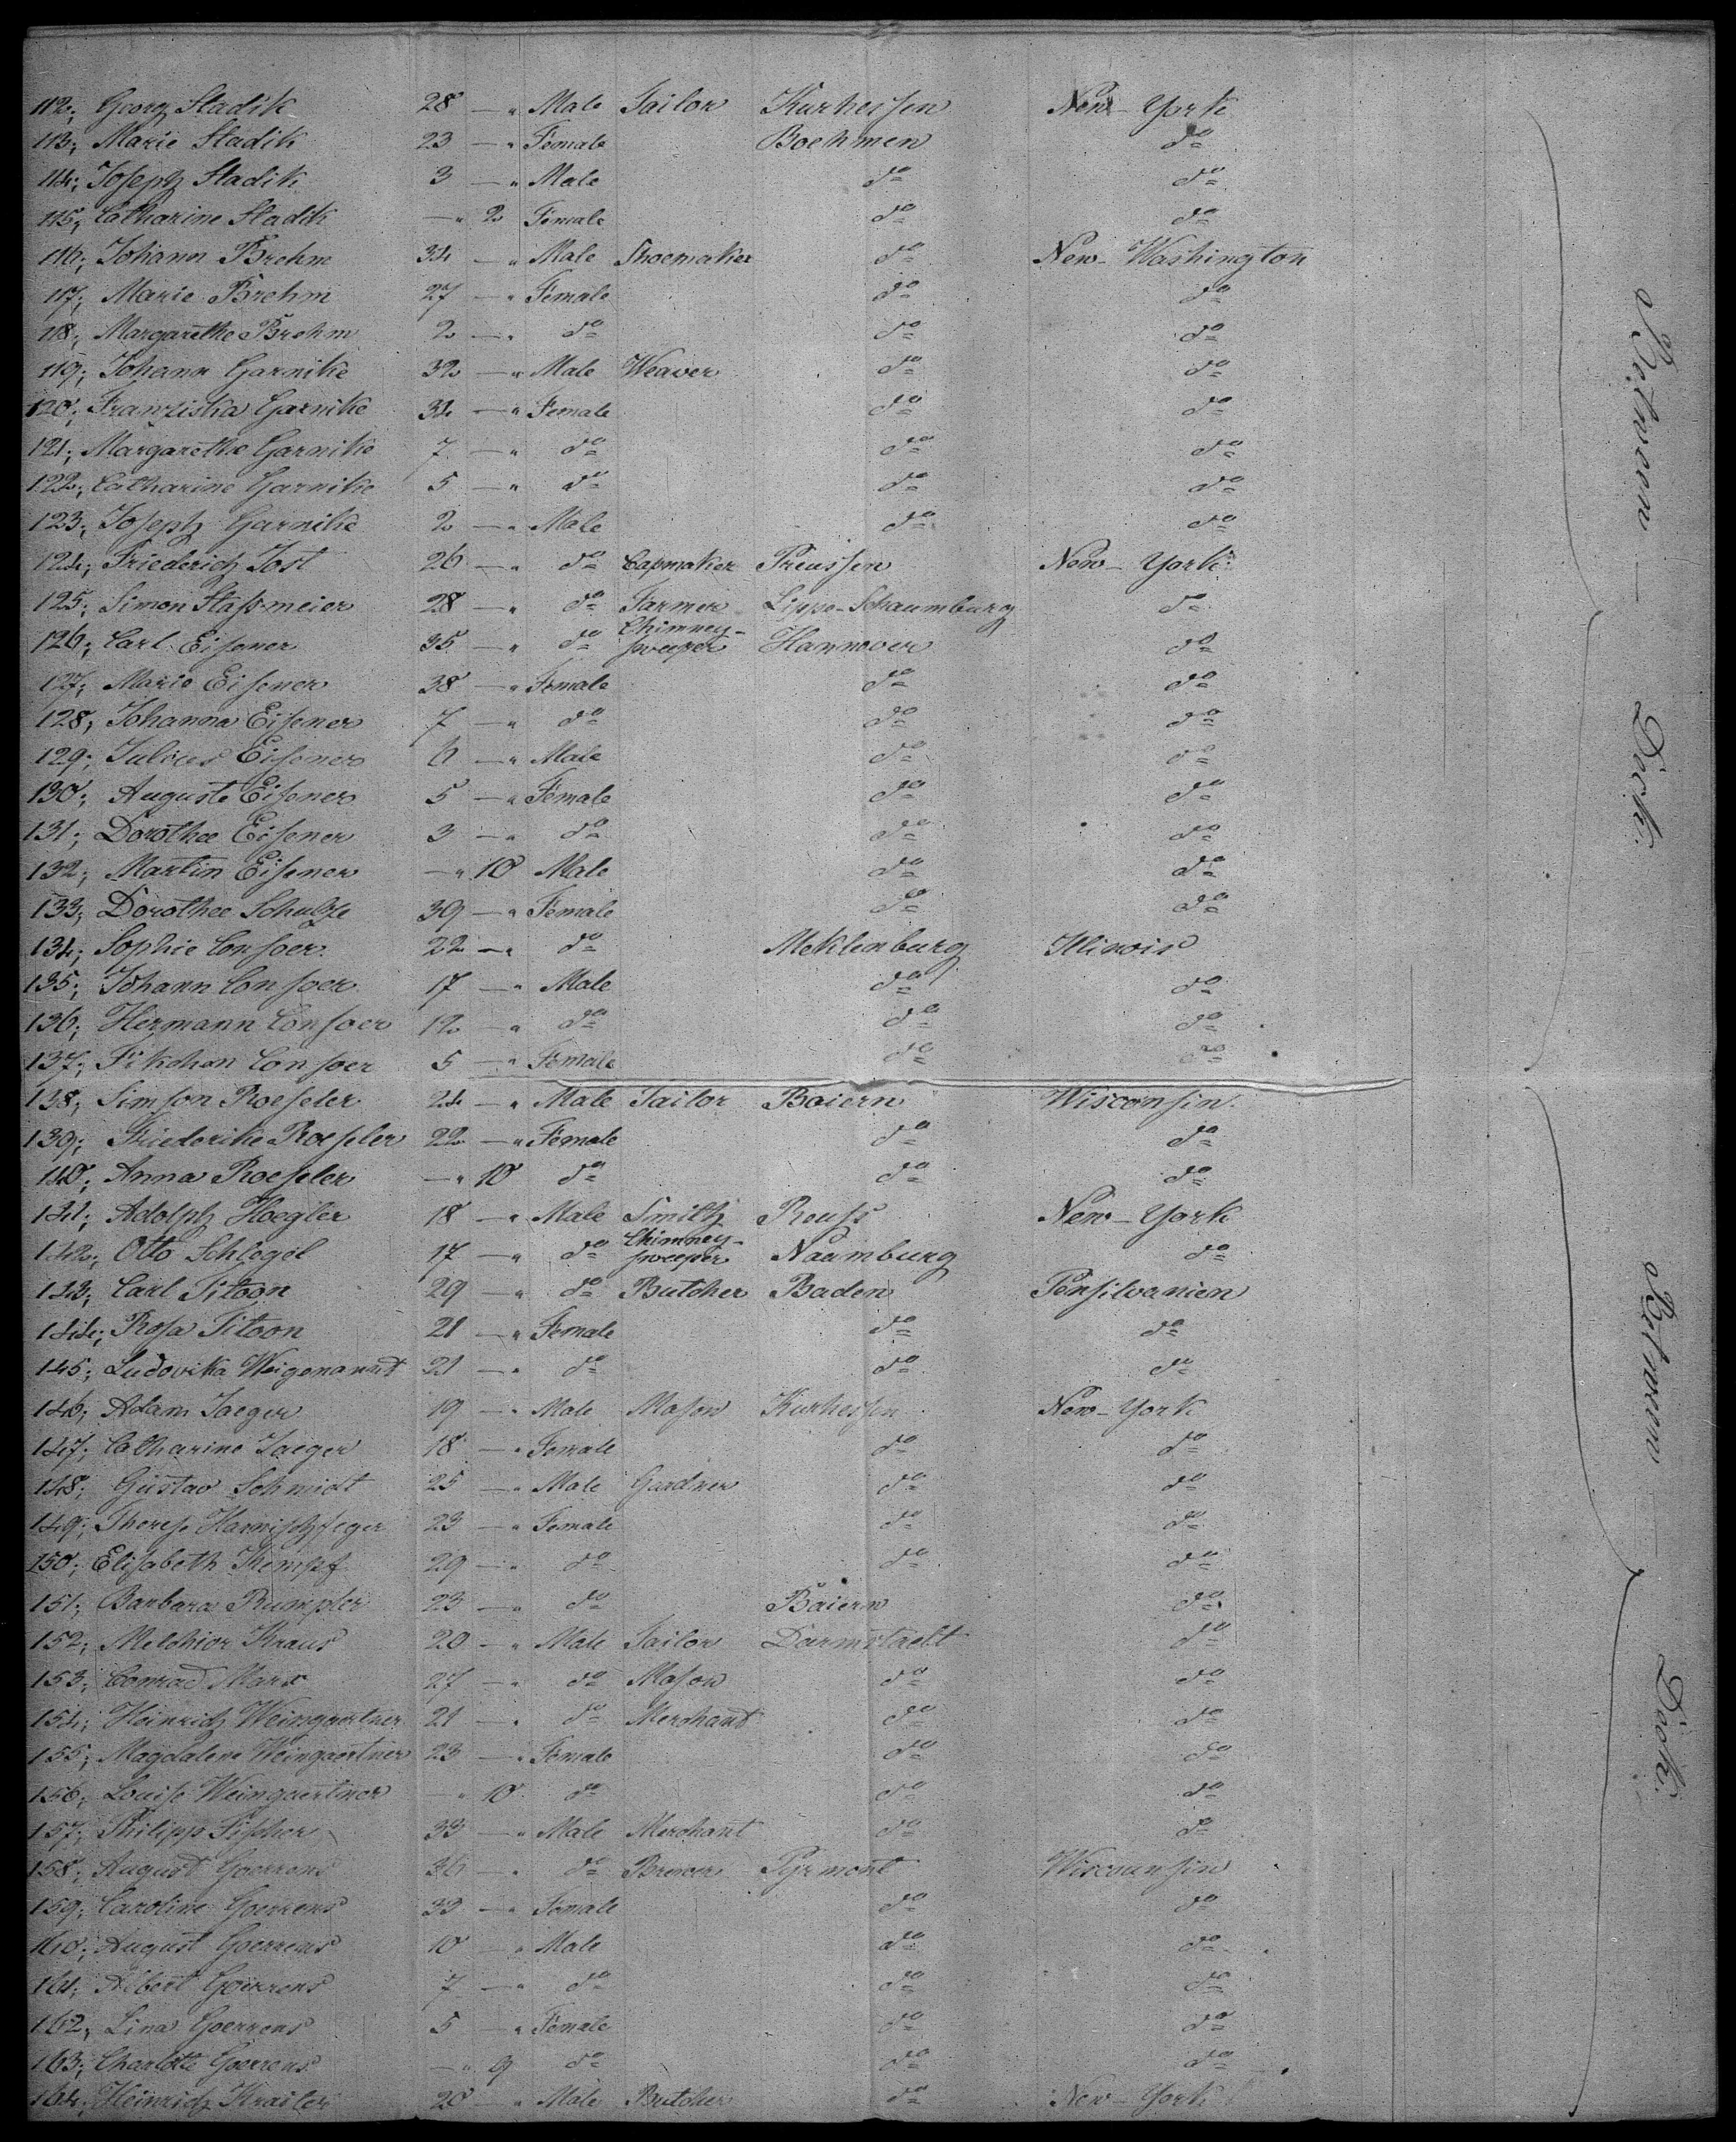 112; Georg Sladik 28 — " Male Tailor Kurhessen New-York
113; Marie Sladik 23 — " Female Boehmen do
114; Joseph Sladik 3 — " Male do do
115; Catharine Sladik — " 2 Female do do
116; Johann Brehm 34 — " Male Shoemaker do New-Washington
117; Marie Brehm 27 — " Female do do
118; Margarethe Brehm 2 — " do do do
119; Johann Garnike 32 — " Male Weaver do do
120; Franziska Garnike 34 — " Female do do
121; Margarethe Garnike 7 — " do do do
122; Catharine Garnike 5 — " do do do
123; Joseph Garnike 2 — " Male do do
124; Friederich Jost 26 — " do Capmaker Preussen New-York
125; Simon Stassmeier 28 — " do Farmer Lippe-Schaumburg do
126; Carl Eisener 35 — " do Chimney-sweeper Hannover do
127; Marie Eisener 38 — " Female do do
128; Johanna Eisener 7 — " do do do
129; Julius Eisener 6 — " Male do do
130; Auguste Eisener 5 — " Female do do
131; Dorothee Eisener 3 — " do do do
132; Martin Eisener — " 10 Male do do
133; Dorothee Schulze 39 — " Female do do
134; Sophie Consoer 22 — " do Meklenburg Illinois
135; Johann Consoer 17 — " Male do do
136; Hermann Consoer 12 — " do do do
137; Fikchen Consoer 5 — " Female do do
138; Simson Roeseler 24 — " Male Tailor Baiern Wisconsin
139; Friederike Roeseler 22 — " Female do do
140; Anna Roeseler — " 10 do do do
141; Adolph Hoegler 18 — " Male Smith Reuss New-York
142; Otto Schlegel 17 — " do Chimney-sweeper Naumburg do
143; Carl Titoon 29 — " do Butcher Baden Pensilvanien
144; Rosa Titoon 21 — " Female do do
145; Ludovika Weigenannt 21 — " do do do
146; Adam Jaeger 19 — " Male Mason Kurhessen New-York
147; Catharine Jaeger 18 — " Female do do
148; Gustav Schmidt 25 — " Male Gardner do do
149; Therese Harnischfeger 23 — " Female do do
150; Elisabeth Kempf 29 — " do do do
151; Barbara Rumpler 23 — " do Baiern do
152; Melchior Kraus 20 — " Male Tailor Darmstadt do
153; Conrad Marx 27 — " do Mason do do
154; Heinrich Weingaertner 21 — " do Merchant do do
155; Magdalene Weingaertner 23 — " Female do do
156; Louise Weingaertner — " 10 do do do
157; Philipp Fischer 33 — " Male Merchant do do
158; August Goerrens 36 — " do Brewer Pyrmont Wiscounsin
159; Caroline Goerrens 33 — " Female do do
160; August Goerrens 10 — " Male do do
161; Albert Goerrens 7 — " do do do
162; Lina Goerrens 5 — " Female do do
163; Charlotte Goerrens — " 9 do do do
164; Heinrich Krailer 20 — " Male Butcher do New-York
Between — Deck.
Between — Deck.